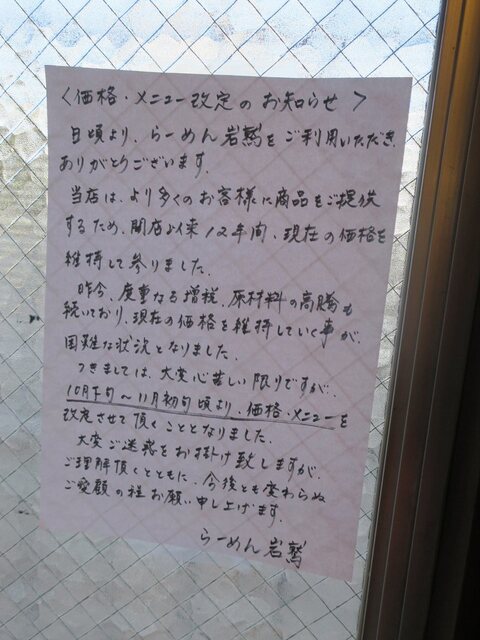 <価格・メニュー改定のお知らせ>
日頃より、らーめん岩鷲をご利用いただき
ありがとうございます。
当店は、より多くのお客様に商品をご提供
するため、開店以来12年間、現在の価格を
維持して参りました。
昨今、度重なる増税、原材料の高騰も
続いており、現在の価格を維持していく事が、
困難な状況となりました。
つきましては、大変心苦しい限りですが、
10月下旬〜11月初旬頃より、価格・メニューを
改定させて頂くこととなりました。
大変ご迷惑をお掛け致しますが、
ご理解頂くとともに、今後とも変わらぬ
ご愛顧の程お願い申し上げます。
らーめん岩鷲